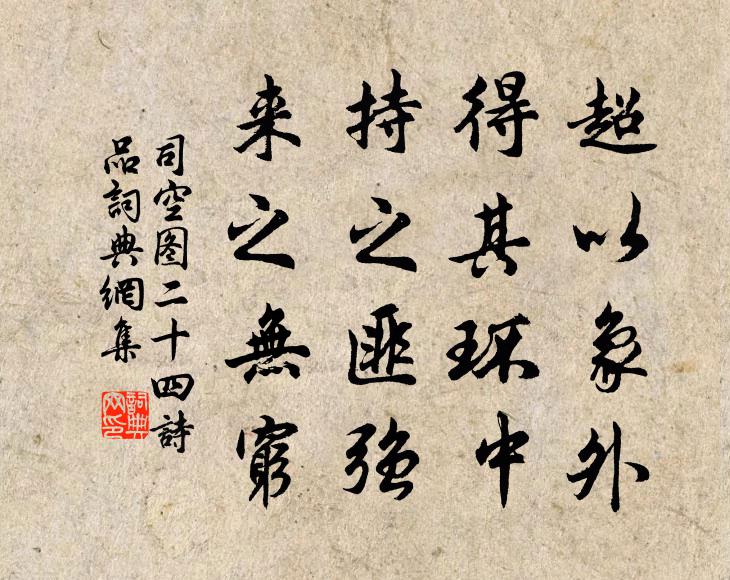 超以象外
得其环中
持之匪强
来之無窮
司空图二十四詩
品詞典網集
詞典網印